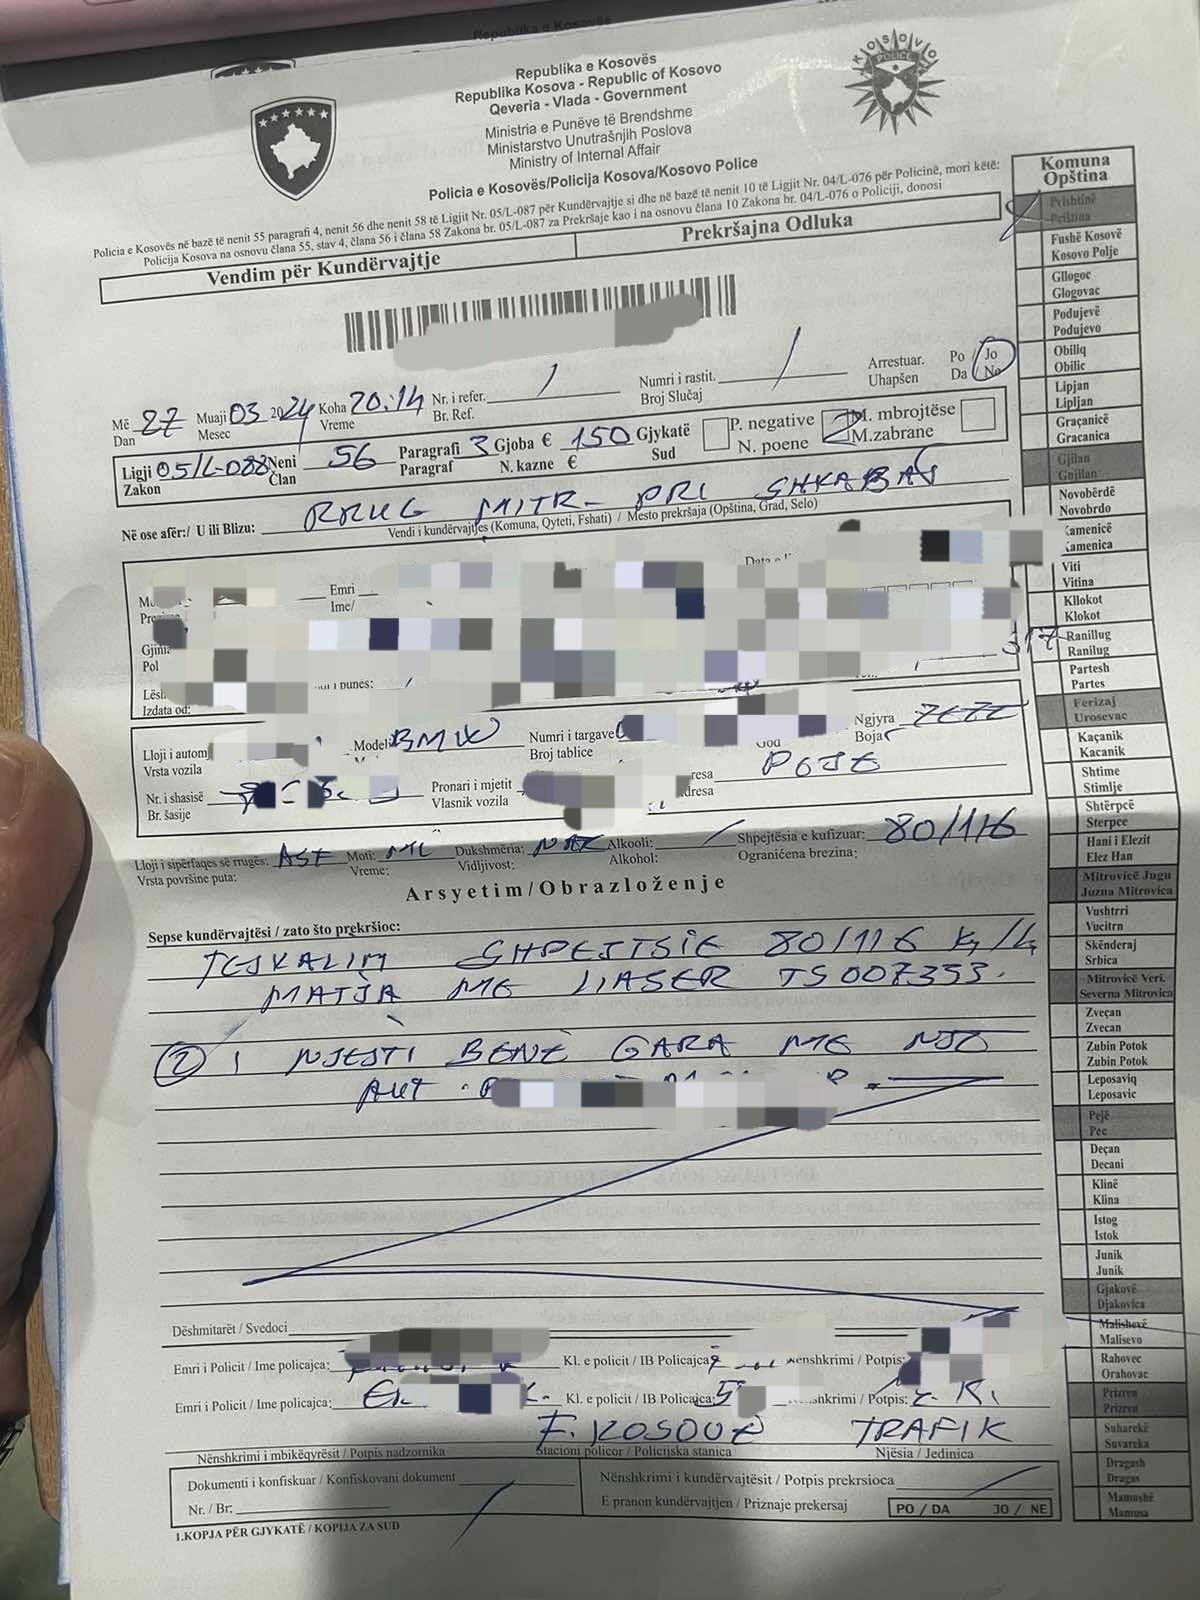 Republika e Kosovës
Republika e Kosovës
Republika Kosova - Republic of Kosovo
Qeveria - Vlada - Government
Ministria e Punëve të Brendshme
Ministarstvo Unutrašnjih Poslova
Ministry of Internal Affair
Policia e Kosovës/Policija Kosova/Kosovo Police
KOSOVO
POLICE
Policia e Kosovës në bazë të nenit 55 paragrafi 4, nenit 56 dhe nenit 58 të Ligjit Nr. 05/L-087 për Kundërvajtje si dhe në bazë të nenit 10 të Ligjit Nr. 04/L-076 për Policinë, mori këtë:
Policija Kosova na osnovu člana 55, stav 4, člana 56 i člana 58 Zakona br. 05/L-087 za Prekršaje kao i na osnovu člana 10 Zakona br. 04/L-076 o Policiji, donosi
Vendim për Kundërvajtje Prekršajna Odluka
Më 27 Muaji 03 2024 Koha 20:14 Nr. i refer. Numri i rastit. Arrestuar. Po / Jo
Dan Mesec Vreme Br. Ref. Broj Slučaj Uhapšen Da / No
Ligji 05/L-088 Neni 56 Paragrafi 3 Gjoba € 150 Gjykatë P. negative 2 M. mbrojtëse
Zakon Član Paragraf N. kazne € Sud N. poene M.zabrane
Në ose afër:/ U ili Blizu: RRUG MITR- PRI SHKABAJ
Vendi i kundërvajtjes (Komuna, Qyteti, Fshati) / Mesto prekršaja (Opština, Grad, Selo)
Emri
Ime/
Pol
Izdata od:
Lloji i autom Modeli BMW Numri i targave Ngjyra ZEZE
Vrsta vozila Broj tablice Boja
Nr. i shasisë Pronari i mjetit POJE
Br. šasije Vlasnik vozila
Lloji i sipërfaqes së rrugës: ASF Moti: Dukshmëria: Alkooli: Shpejtësia e kufizuar: 80/116
Vrsta površine puta: Vreme: Vidljivost: Alkohol: Ograničena brezina:
Arsyetim/Obrazloženje
Sepse kundërvajtësi / zato što prekršioc:
TEJKALIM SHPEJTSIE 80/116
MATJA ME LIASER TS007353.
2 I NJEJTI BËNË GARA ME NJO
AUT
Dëshmitarët / Svedoci
Emri i Policit / Ime policajca: Kl. e policit / IB Policajca: Potpis:
Emri i Policit / Ime policajca: Kl. e policit / IB Policajca: 5 Potpis:
F. KOSOVË TRAFIK
Nënshkrimi i mbikëqyrësit / Potpis nadzornika Stacioni policor / Policijska stanica Njësia / Jedinica
Dokumenti i konfiskuar / Konfiskovani dokument Nënshkrimi i kundërvajtësit / Potpis prekrsioca
Nr. / Br: E pranon kundërvajtjen / Priznaje prekersaj PO / DA JO / NE
1.KOPJA PËR GJYKATË / KOPIJA ZA SUD
Komuna
Opština
Prishtinë
Priština
Fushë Kosovë
Kosovo Polje
Gllogoc
Glogovac
Podujevë
Podujevo
Obiliq
Obilic
Lipjan
Lipljan
Graçanicë
Gracanica
Gjilan
Gnjilan
Novobërdë
Novobrdo
Kamenicë
Kamenica
Viti
Vitina
Kllokot
Klokot
Ranillug
Ranilug
Partesh
Partes
Ferizaj
Urosevac
Kaçanik
Kacanik
Shtime
Stimlje
Shtërpcë
Sterpce
Hani i Elezit
Elez Han
Mitrovicë Jugu
Juzna Mitrovica
Vushtrri
Vucitrn
Skënderaj
Srbica
Mitrovicë Veri.
Severna Mitrovica
Zveçan
Zvecan
Zubin Potok
Zubin Potok
Leposaviq
Leposavic
Pejë
Pec
Deçan
Decani
Klinë
Klina
Istog
Istok
Junik
Junik
Gjakovë
Djakovica
Malishevë
Malisevo
Rahovec
Orahovac
Prizren
Prizren
Suharekë
Suvareka
Dragash
Dragas
Mamushë
Mamusa